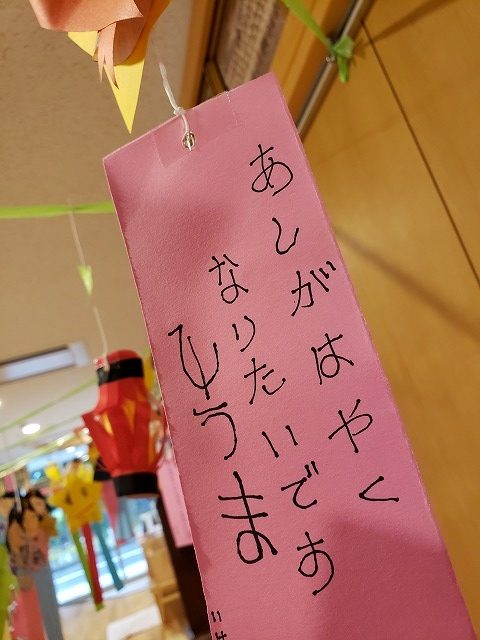 あしがはやく
なりたいです
ゆうま